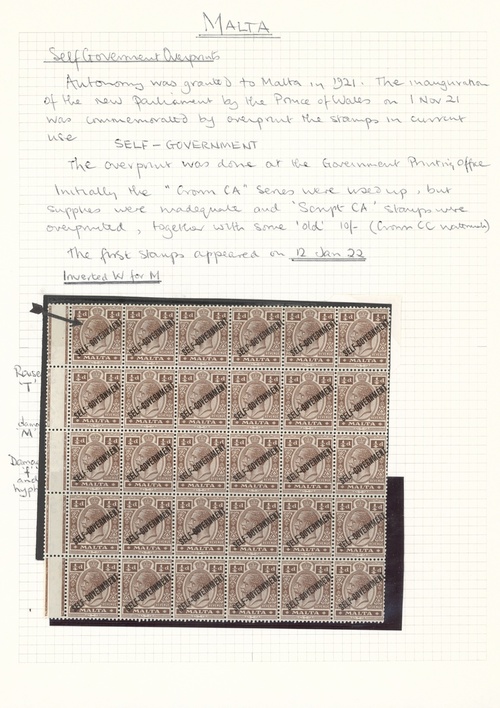 MALTA
Self Goverment Overprints
Autonomy was granted to Malta in 1921. The inauguration
of the new Parliament by the Prince of Wales on 1 Nov 21
was commemorated by overprint the stamps in current
use
SELF-GOVERNMENT
The overprint was done at the Government Printing Office
Initially the "Crown CA" Series were used up, but
supplies were inadequate and 'Script CA' stamps were
overprinted, together with some 'old' 10/- (Crown CC watermark)
The first stamps appeared on 12 Jan 22
Inverted W for M
Raised
'T'
'M'
and
SELF-GOVERNMENT
MALTA